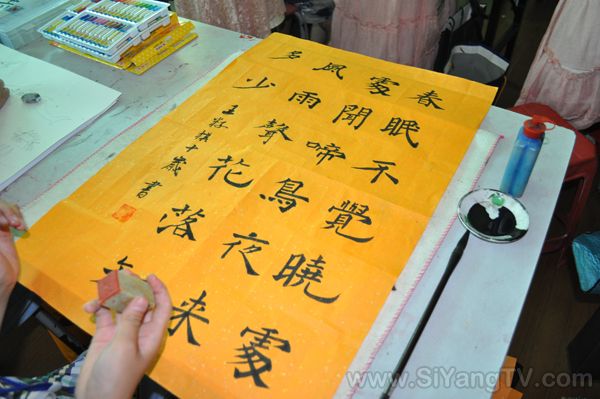 春眠不覺曉處
處聞啼鳥夜来
風雨聲花落
多少
王 棋十歲書
www.SiYangTV.com